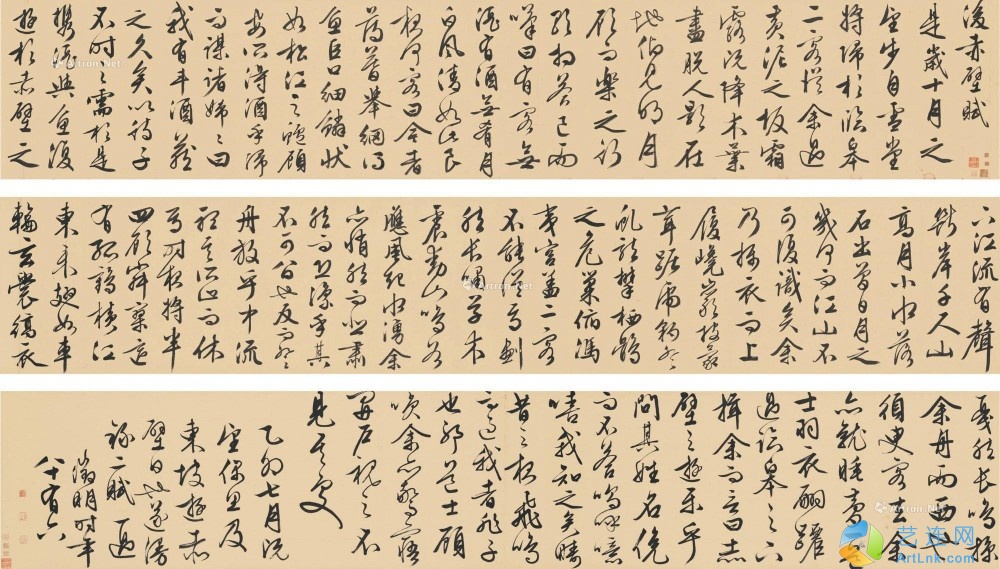 後赤壁賦
是歲十月之
望步自雪堂
將歸於臨皋
二客從余過
黃泥之坂霜
露既降木葉
盡脫人影在
地仰見明月
顧而樂之行
歌相答已而
嘆曰有客無
酒有酒無肴月
白風清如此良
夜何客曰今者
薄暮舉網得
魚巨口細鱗狀
如松江之鱸顧
安所得酒乎歸
而謀諸婦婦曰
我有斗酒藏
之久矣以待子
不時之需於是
攜酒與魚復
遊於赤壁之
下江流有聲
斷岸千尺山
高月小水落
石出曾日月之
幾何而江山不
可復識矣余
乃攝衣而上
履巉巖披蒙
茸踞虎豹登
虬龍攀栖鶻
之危巢俯馮
夷宮蓋二客
不能從焉劃
然長嘯草木
震動山鳴谷
應風起水湧余
亦悄然而悲肅
然而恐凜乎其
不可留也反而登
舟放乎中流
聽其所止而休
焉時夜將半
四顧寂寥適
有孤鶴橫江
東來翅如車
輪玄裳縞衣
戛然長鳴掠
余舟而西也
須臾客去余
亦就睡夢一道
士羽衣翩躚
過臨皋之下
揖余而言曰赤
壁之遊樂乎
問其姓名俛
而不答嗚呼噫
嘻我知之矣疇
昔之夜飛鳴
而過我者非子
也耶道士顧
笑余亦驚寤
開戶視之不
見其處
乙卯七月既
望偶思及
東坡遊赤
壁日也遂漫
錄二賦一過
徵明時年
八十有六
Artron.Net
Artron.Net
Artron.Net
Artron.Net
艺连网
ArtLnk.com